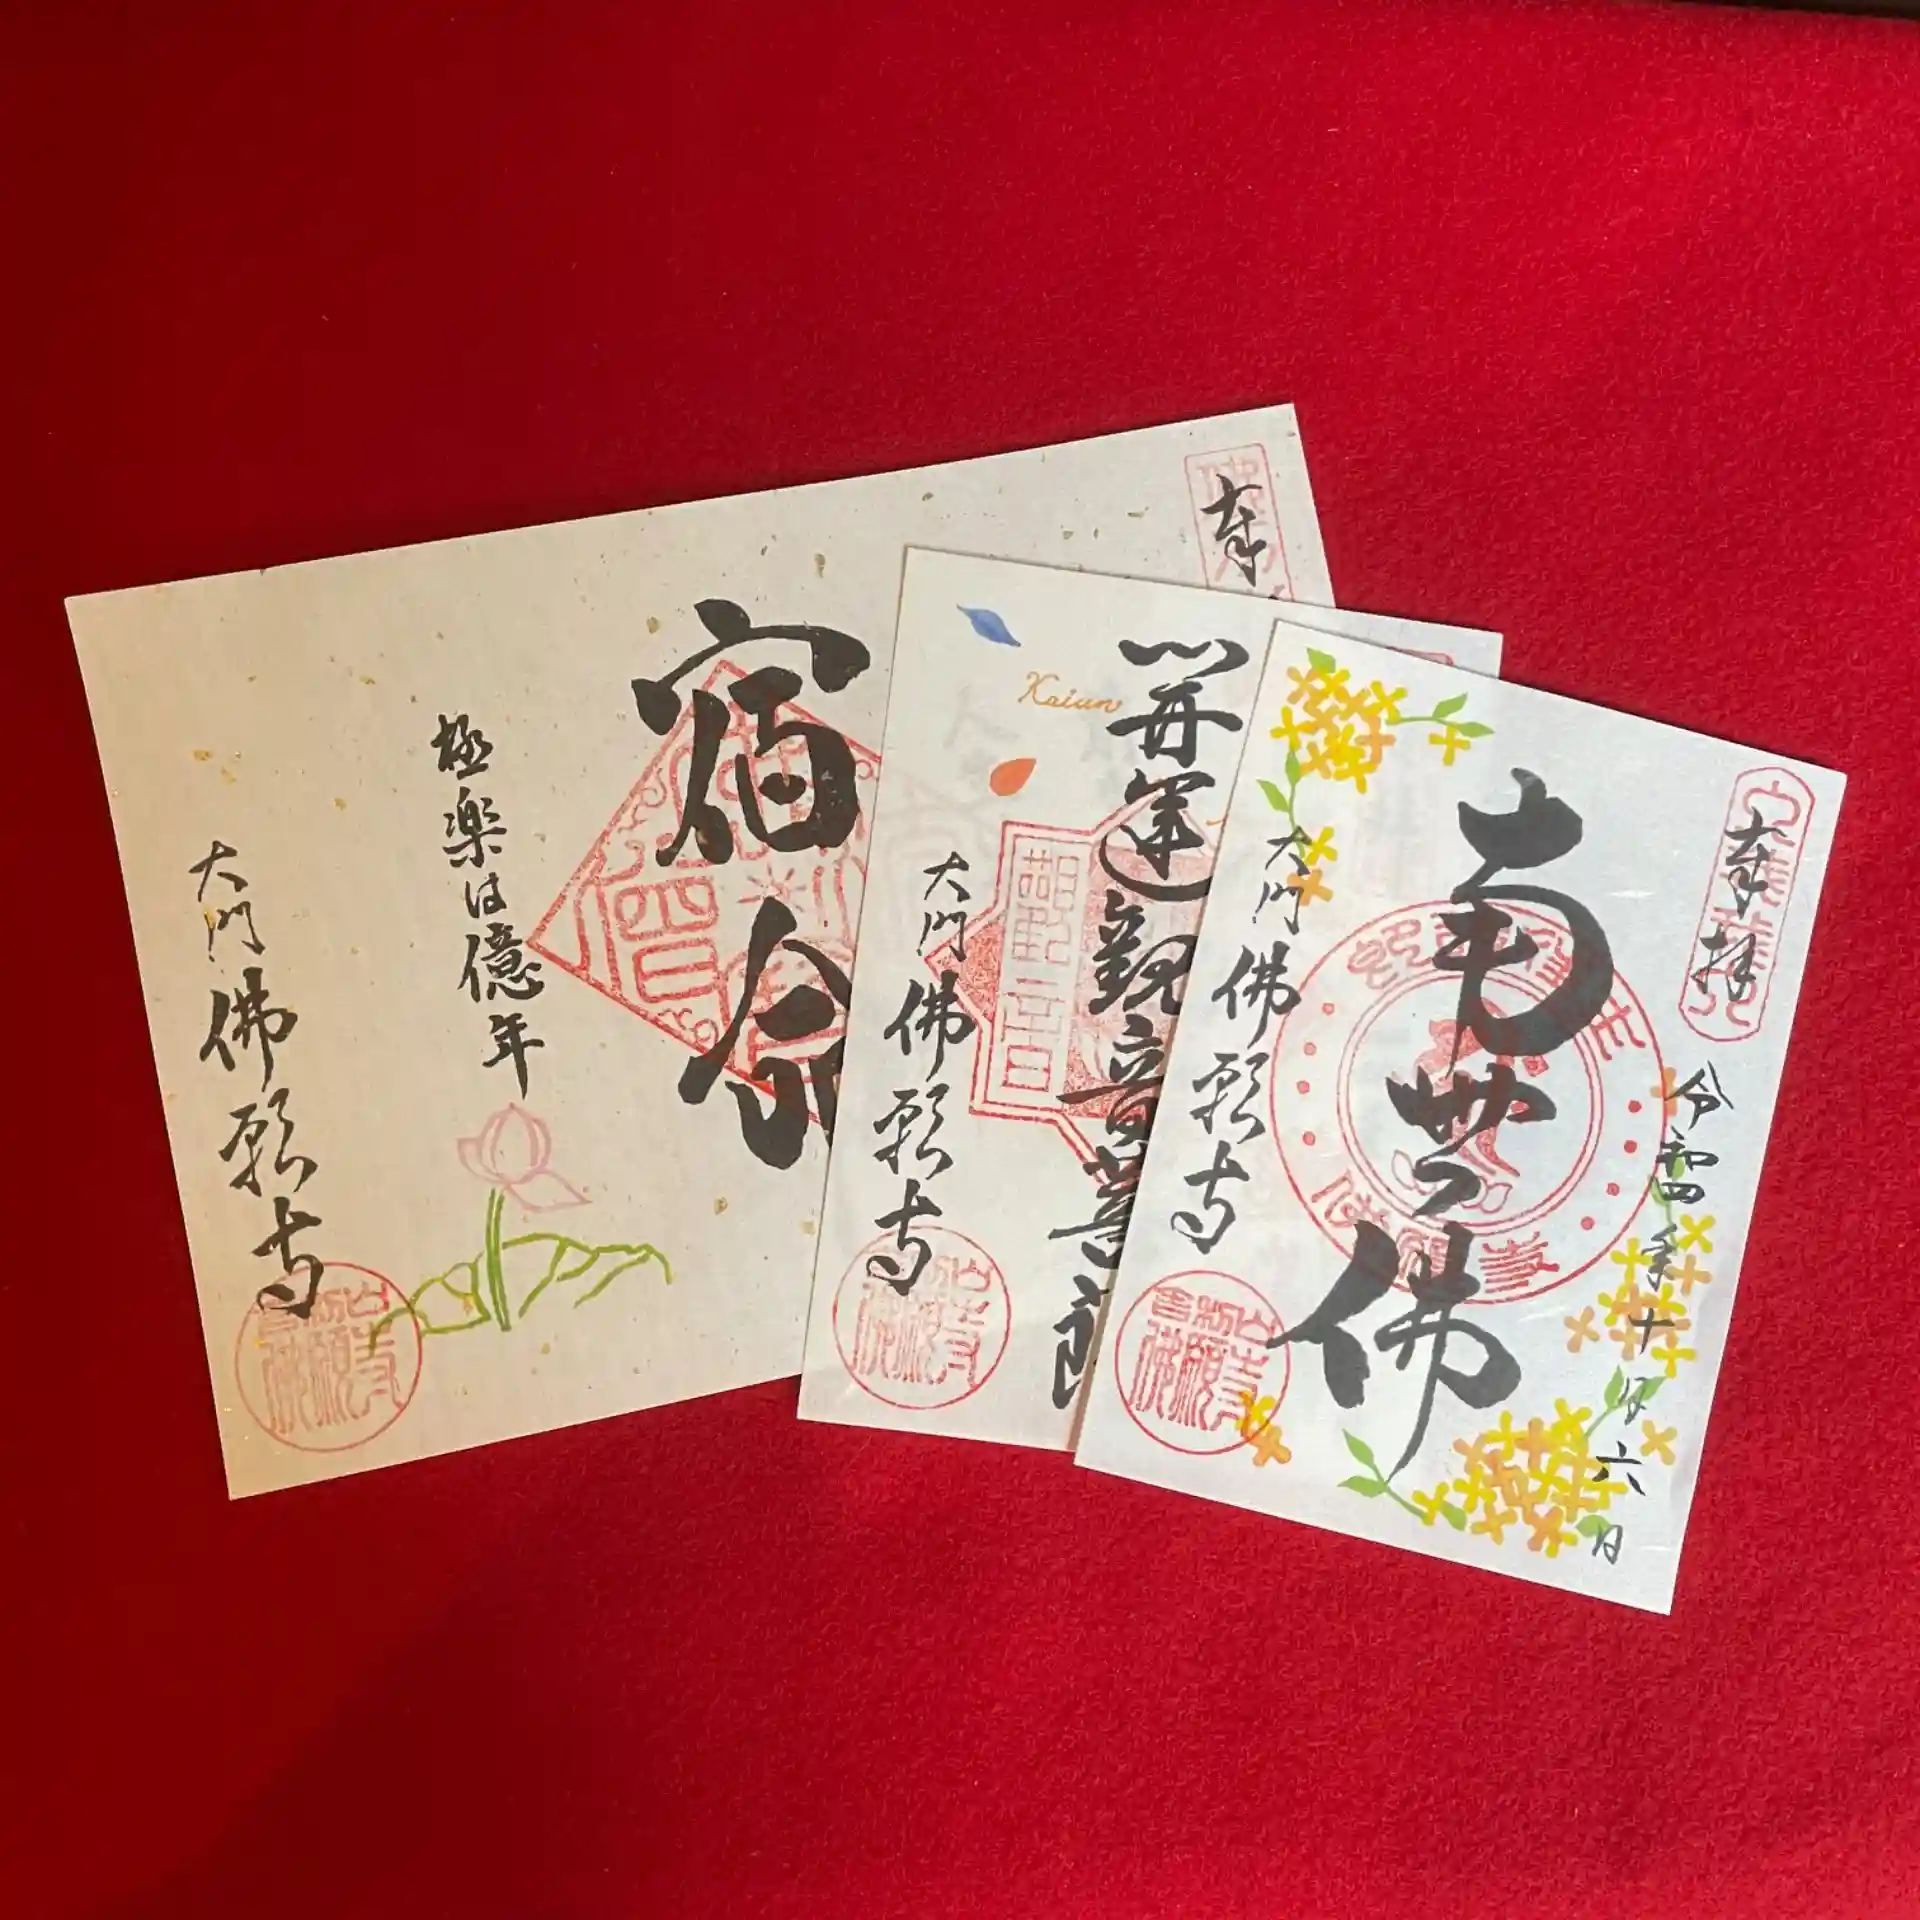 奉拝
令和四年十月六日
南無佛
大門
佛願寺
開運観音菩薩
Kaiun
大門
佛願寺
奉
宿命
極楽は億年
大門
佛願寺